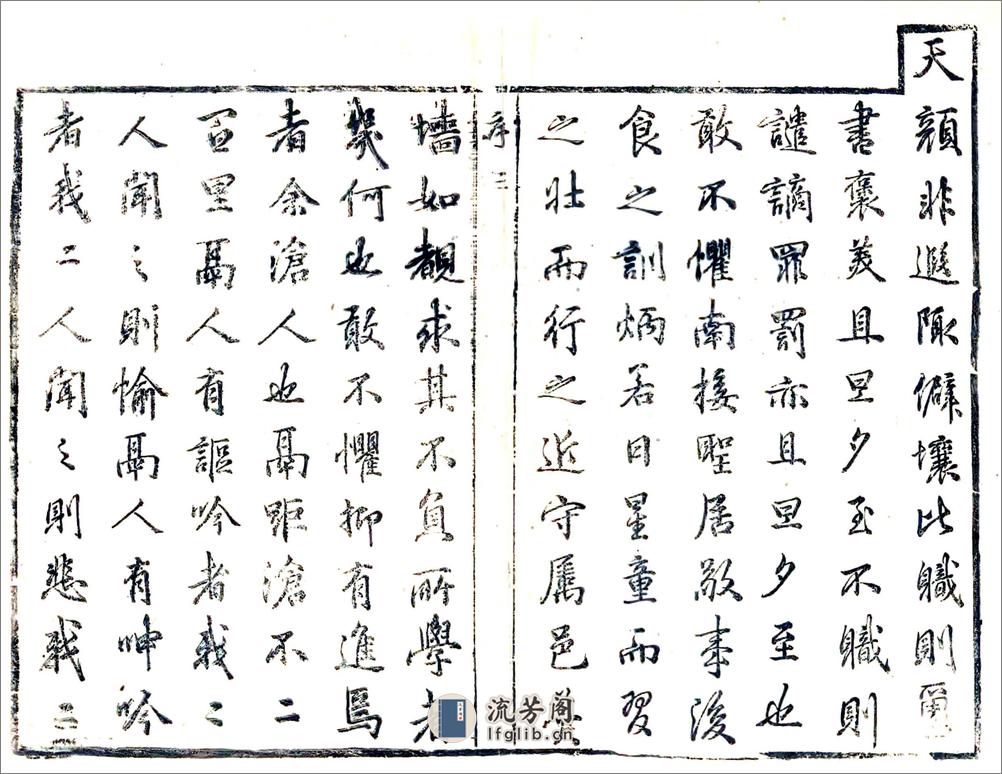 天顏非遐陬僻壤比職則璽
書褒美且旦夕至不職則
譴謫罪罰亦且旦夕至也
敢不懼南接聖居敬事後
食之訓炳若日星童而習
之壯而行之近守屬邑
序 三
墻如覩求其不負所學者
幾何也敢不懼抑有進焉
者余滄人也鬲距滄不二
百里鬲人有謳吟者我二
人聞之則愉鬲人有呻吟
者我二人聞之則悲我二
流芳阁
lfglib.cn